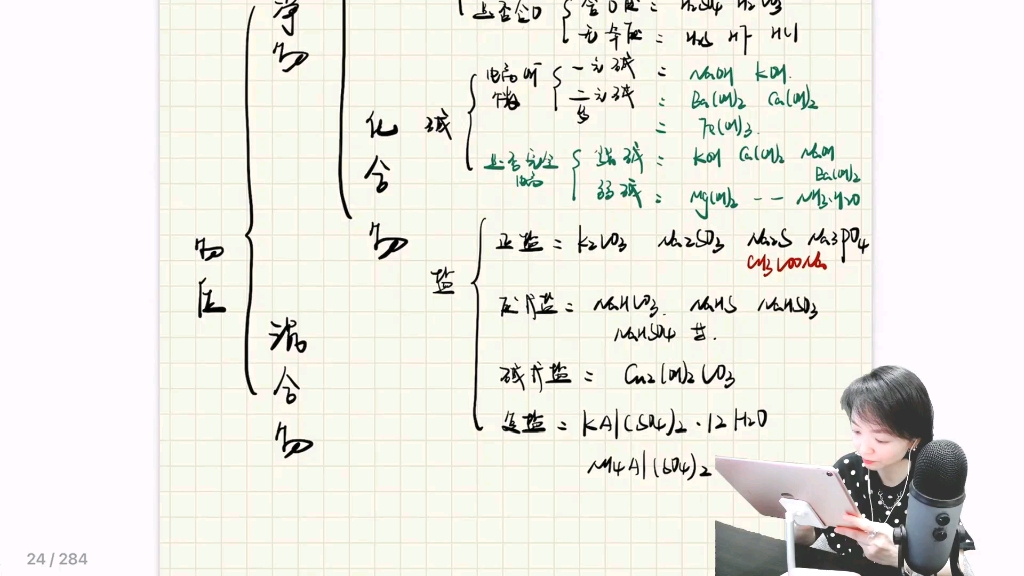 净
物
是否含O
含O酸：H₂SO₄ H₂CO₃
无氧酸：H₂S HF HCl
化
合
物
碱
电离OH⁻
个数
一元碱：NaOH KOH
二元碱：Ba(OH)₂ Ca(OH)₂
多：Fe(OH)₃
是否完全
电离
强碱：KOH Ca(OH)₂ NaOH
Ba(OH)₂
弱碱：Mg(OH)₂ -- NH₃·H₂O
盐
正盐：K₂CO₃ Na₂SO₃ Na₂S Na₃PO₄
CH₃COONa
酸式盐：NaHCO₃ NaHS NaHSO₃
NaHSO₄ 等.
碱式盐：Cu₂(OH)₂CO₃
复盐：KAl(SO₄)₂·12H₂O
NH₄Al(SO₄)₂
物
质
混
合
物
24 / 284